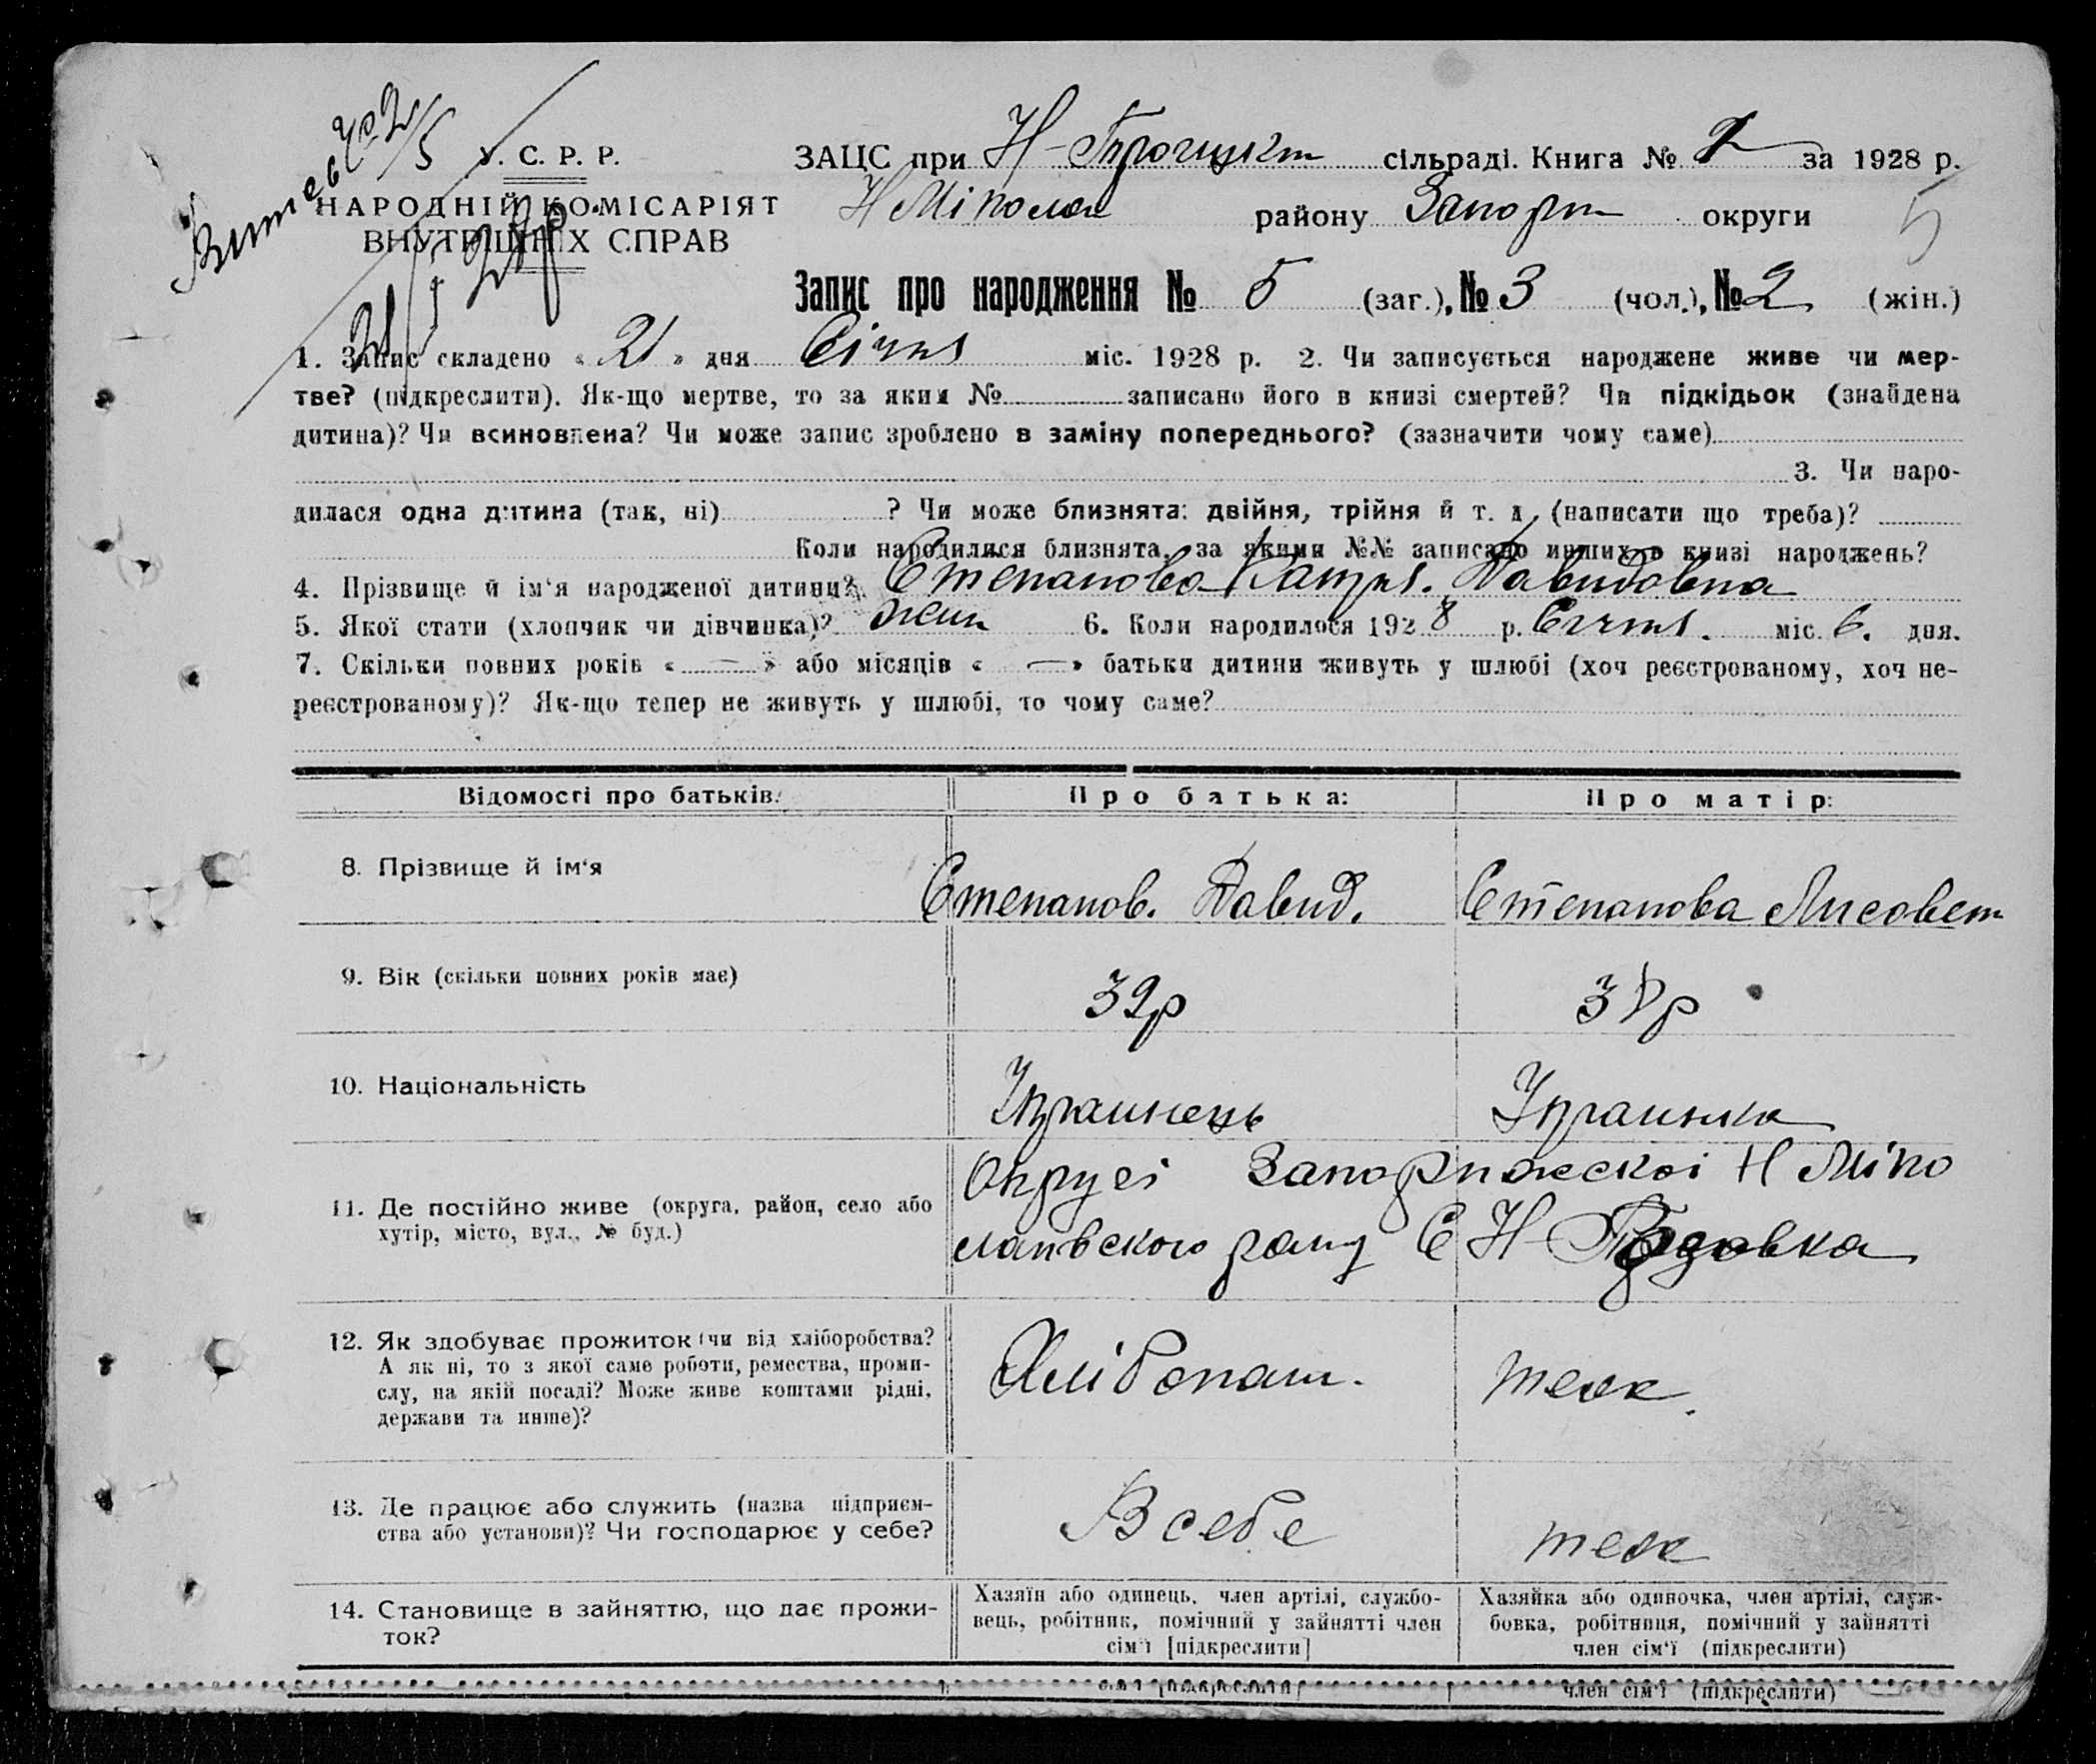 У. С. Р. Р.
НАРОДНІЙ КОМІСАРІЯТ
ВНУТРІШНІХ СПРАВ
ЗАЦС при Н- сільраді. Книга № за 1928 р.
району Запоріз округи 5
Запис про народження № 5 (заг.), № 3 (чол.), № 2 (жін.)
1. Запис складено « 21 » дня Січня міс. 1928 р. 2. Чи записується народжене живе чи мер-
тве? (підкреслити). Як-що мертве, то за яким № записано його в книзі смертей? Чи підкідьок (знайдена
дитина)? Чи всиновлена? Чи може запис зроблено в заміну попереднього? (зазначити чому саме)
3. Чи наро-
дилася одна дитина (так, ні) ? Чи може близнята: двійня, трійня й т. д. (написати що треба)?
Коли народилися близнята, за якими №№ записано инших в книзі народжень?
4. Прізвище й ім'я народженої дитини? Степанова Катря. Давидовна
5. Якої стати (хлопчик чи дівчинка)? жін 6. Коли народилося 1928 р. Січня. міс. 6. дня.
7. Скільки повних років « — » або місяців « — » батьки дитини живуть у шлюбі (хоч реєстрованому, хоч не-
реєстрованому)? Як-що тепер не живуть у шлюбі, то чому саме?
Відомості про батьків: Про батька: Про матір:
8. Прізвище й ім'я Степанов. Давид. Степанова Лисовет
9. Вік (скільки повних років має) 32р
10. Національність Украинець Украинка
11. Де постійно живе (округа, район, село або
хутір, місто, вул., № буд.)
Округі Запорижскоі Н Міко
лаівского раму С Н-
12. Як здобуває прожиток (чи від хліборобства?
А як ні, то з якої саме роботи, ремества, проми-
слу, на якій посаді? Може живе коштами рідні,
держави та инше)?
Хлібопаш. теж.
13. Де працює або служить (назва підприєм-
ства або установи)? Чи господарює у себе?
В себе теж
14. Становище в зайняттю, що дає прожи-
ток?
Хазяїн або одинець, член артілі, службо-
вець, робітник, помічний у зайнятті член
сім'ї [підкреслити]
Хазяйка або одиночка, член артілі, служ-
бовка, робітниця, помічний у зайнятті
член сім'ї (підкреслити)
член сім'ї (підкреслити)